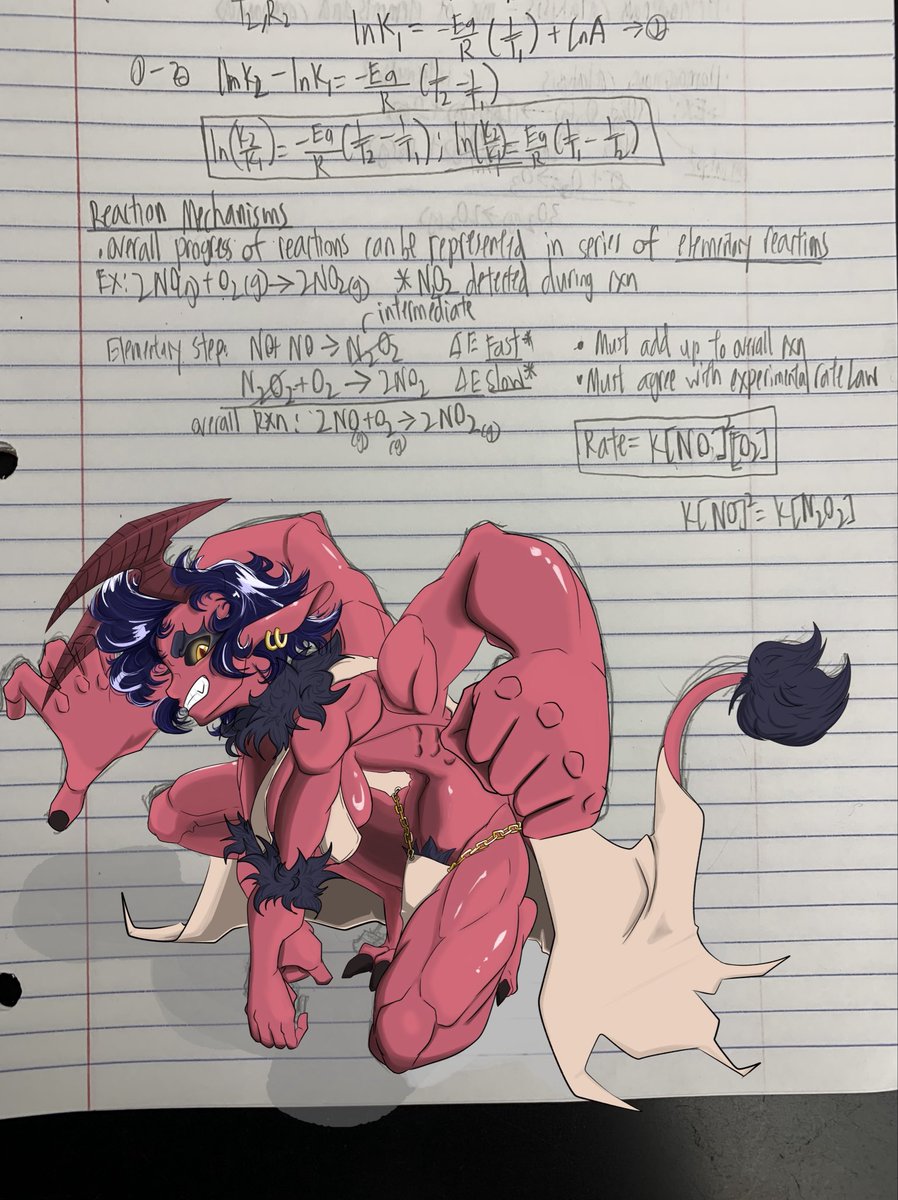 T2,R2
lnK1 = -Ea/R (1/T1) + lnA → ②
①-② lnK2 - lnK1 = -Ea/R (1/T2 - 1/T1)
ln(K2/K1) = -Ea/R (1/T2 - 1/T1) ; ln(K2/K1) = Ea/R (1/T1 - 1/T2)
Reaction Mechanisms
• overall progress of reactions can be represented in series of elementary reactions
Ex: 2NO(g) + O2(g) → 2NO2(g) * N2O2 detected during rxn
intermediate
Elementary Step: NO + NO → N2O2 ΔE Fast* • Must add up to overall rxn
N2O2 + O2 → 2NO2 ΔE Slow* • Must agree with experimental rate Law
overall Rxn: 2NO(g) + O2(g) → 2NO2(g)
Rate = K[NO]²[O2]
K[NO]² = K[N2O2]